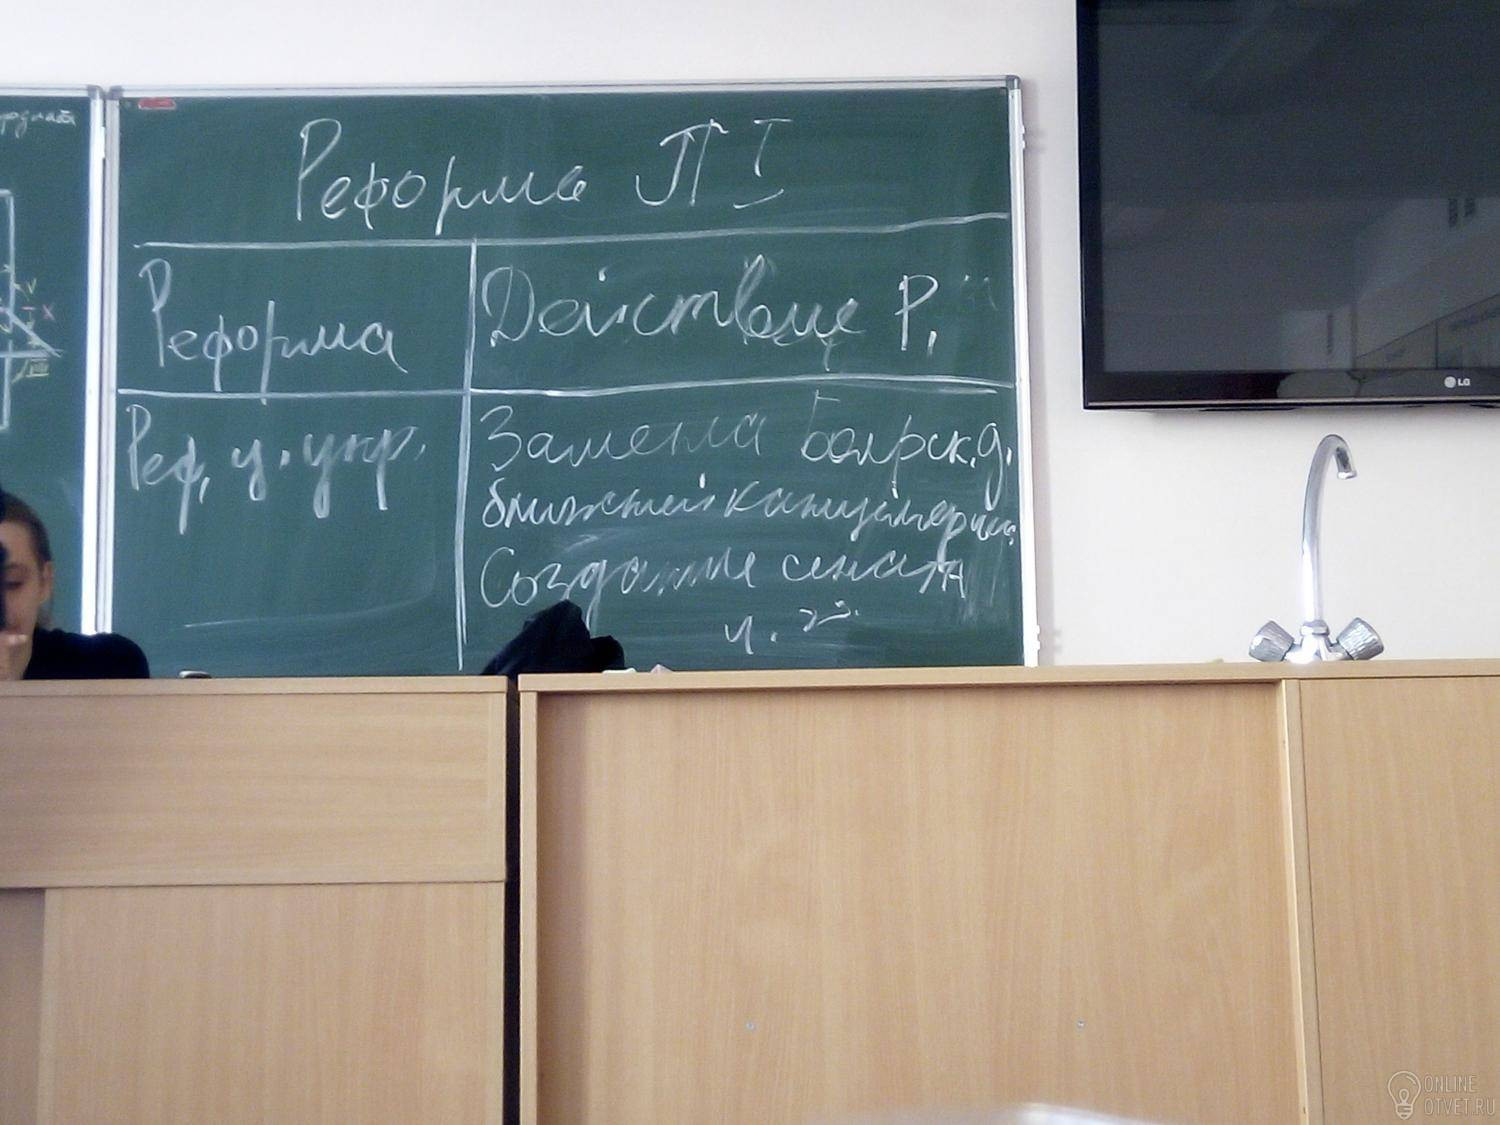 Реформа П I
Реформа
Действие Р.
Реф. ц. упр.
Замена Боярск. д.
ближней канцелярией
Создание сената
LG
ONLINE
OTVET.RU